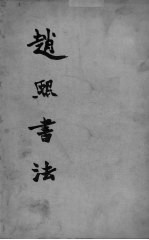 趙熙書法